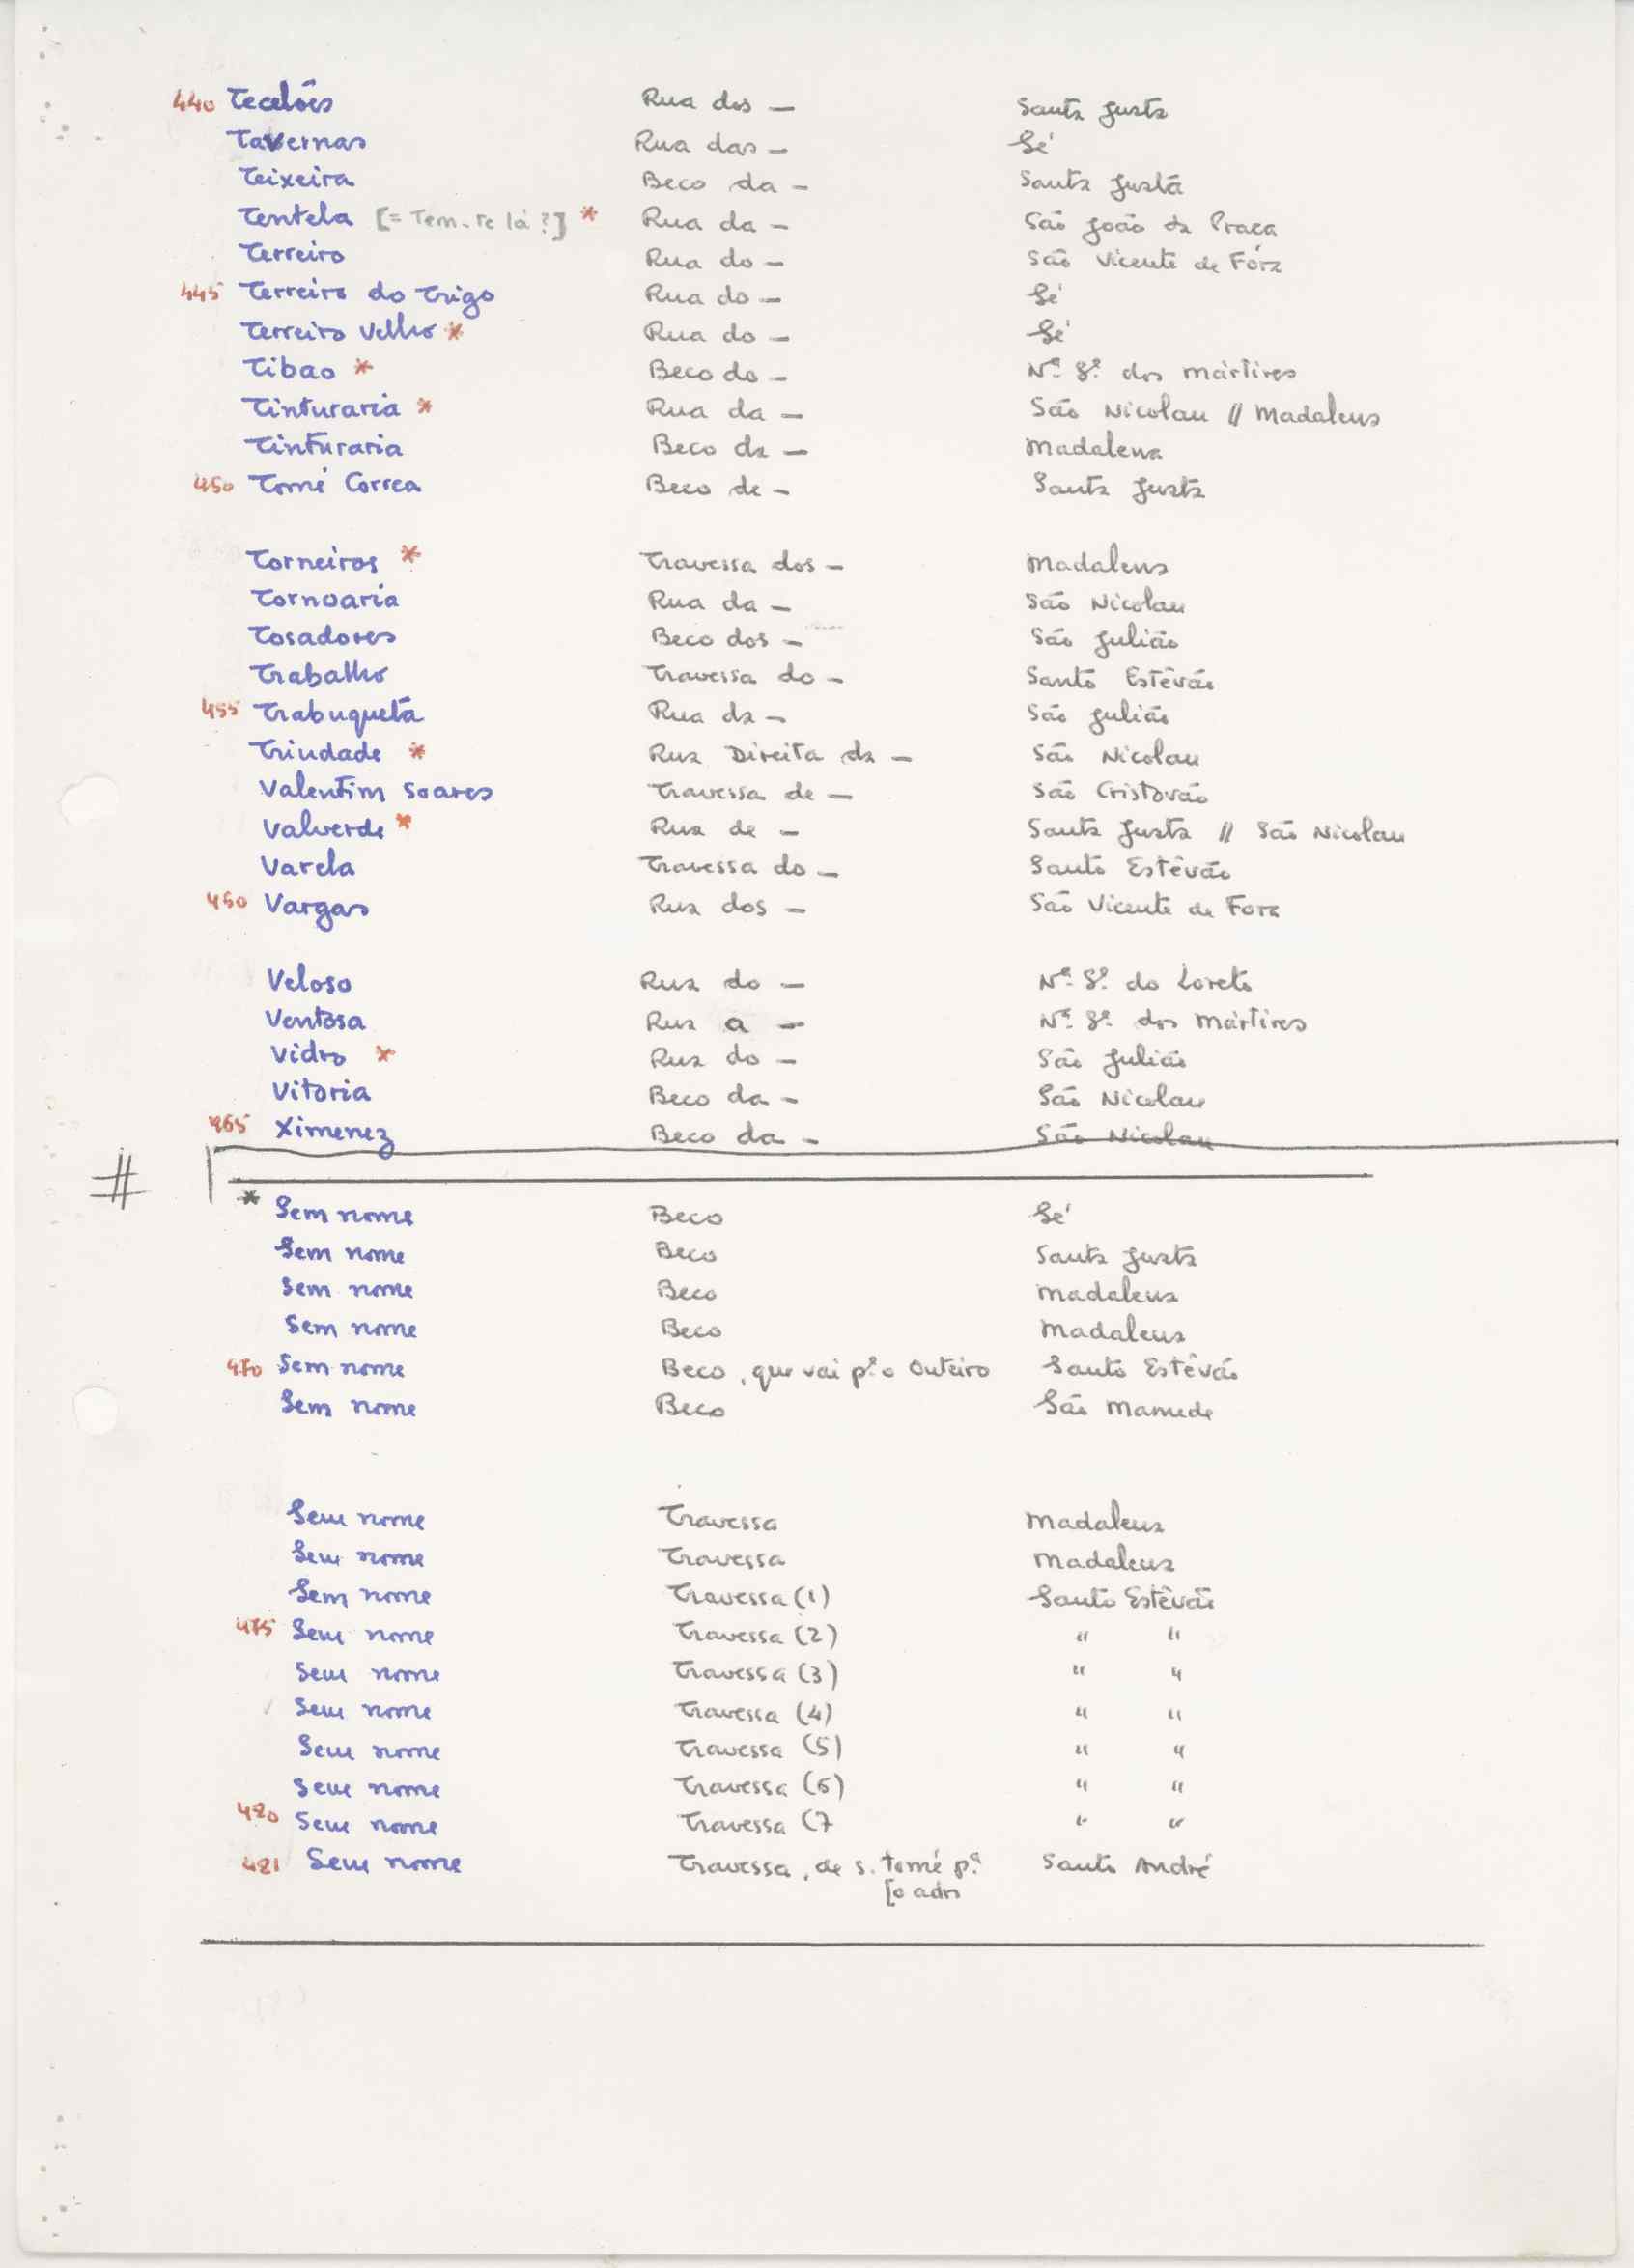 440 Tecelões Rua dos — Santa Justa
Tavernas Rua das — Sé
Teixeira Beco da — Santa Justa
Tentela [= Tem-te lá?] * Rua da — São João da Praça
Terreiro Rua do — São Vicente de Fóra
445 Terreiro do Trigo Rua do — Sé
Terreiro Velho * Rua do — Sé
Tibao * Beco do — Nª Sª dos mártires
Tinturaria * Rua da — São Nicolau // Madalena
Tinturaria Beco da — Madalena
450 Tomé Correa Beco de — Santa Justa
Torneiros * Travessa dos — Madalena
Tornoaria Rua da — São Nicolau
Tosadores Beco dos — São Julião
Trabalho Travessa do — Santo Estêvão
455 Trabuqueta Rua da — São Julião
Trindade * Rua Direita da — São Nicolau
Valentim Soares Travessa de — São Cristovão
Valverde * Rua de — Santa Justa // São Nicolau
Varela Travessa do — Santo Estêvão
460 Vargas Rua dos — São Vicente de Fora
Veloso Rua do — Nª Sª do Loreto
Ventosa Rua a — Nª Sª dos Mártires
Vidro * Rua do — São Julião
Vitoria Beco da — São Nicolau
465 Ximenez Beco da — São Nicolau
#
* Sem nome Beco Sé
Sem nome Beco Santa Justa
Sem nome Beco Madalena
Sem nome Beco Madalena
470 Sem nome Beco, que vai pª o Outeiro Santo Estêvão
Sem nome Beco São Mamede
Sem nome Travessa Madalena
Sem nome Travessa Madalena
Sem nome Travessa (1) Santo Estêvão
475 Sem nome Travessa (2) " "
Sem nome Travessa (3) " "
Sem nome Travessa (4) " "
Sem nome Travessa (5) " "
Sem nome Travessa (6) " "
480 Sem nome Travessa (7 " "
481 Sem nome Travessa, de S. Tomé pª Santo André
[o adro